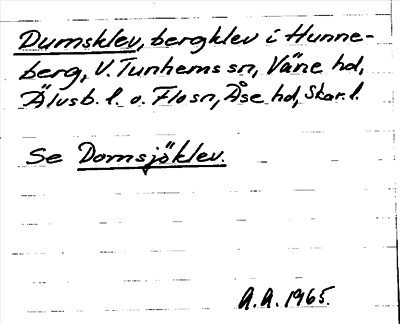 Dumsklev, bergklev i Hunne-
berg, V. Tunhems sn, Väne hd,
Älvsb. l. o. Flo sn, Åse hd, Skar. l.
Se Domsjöklev.
A.A. 1965.